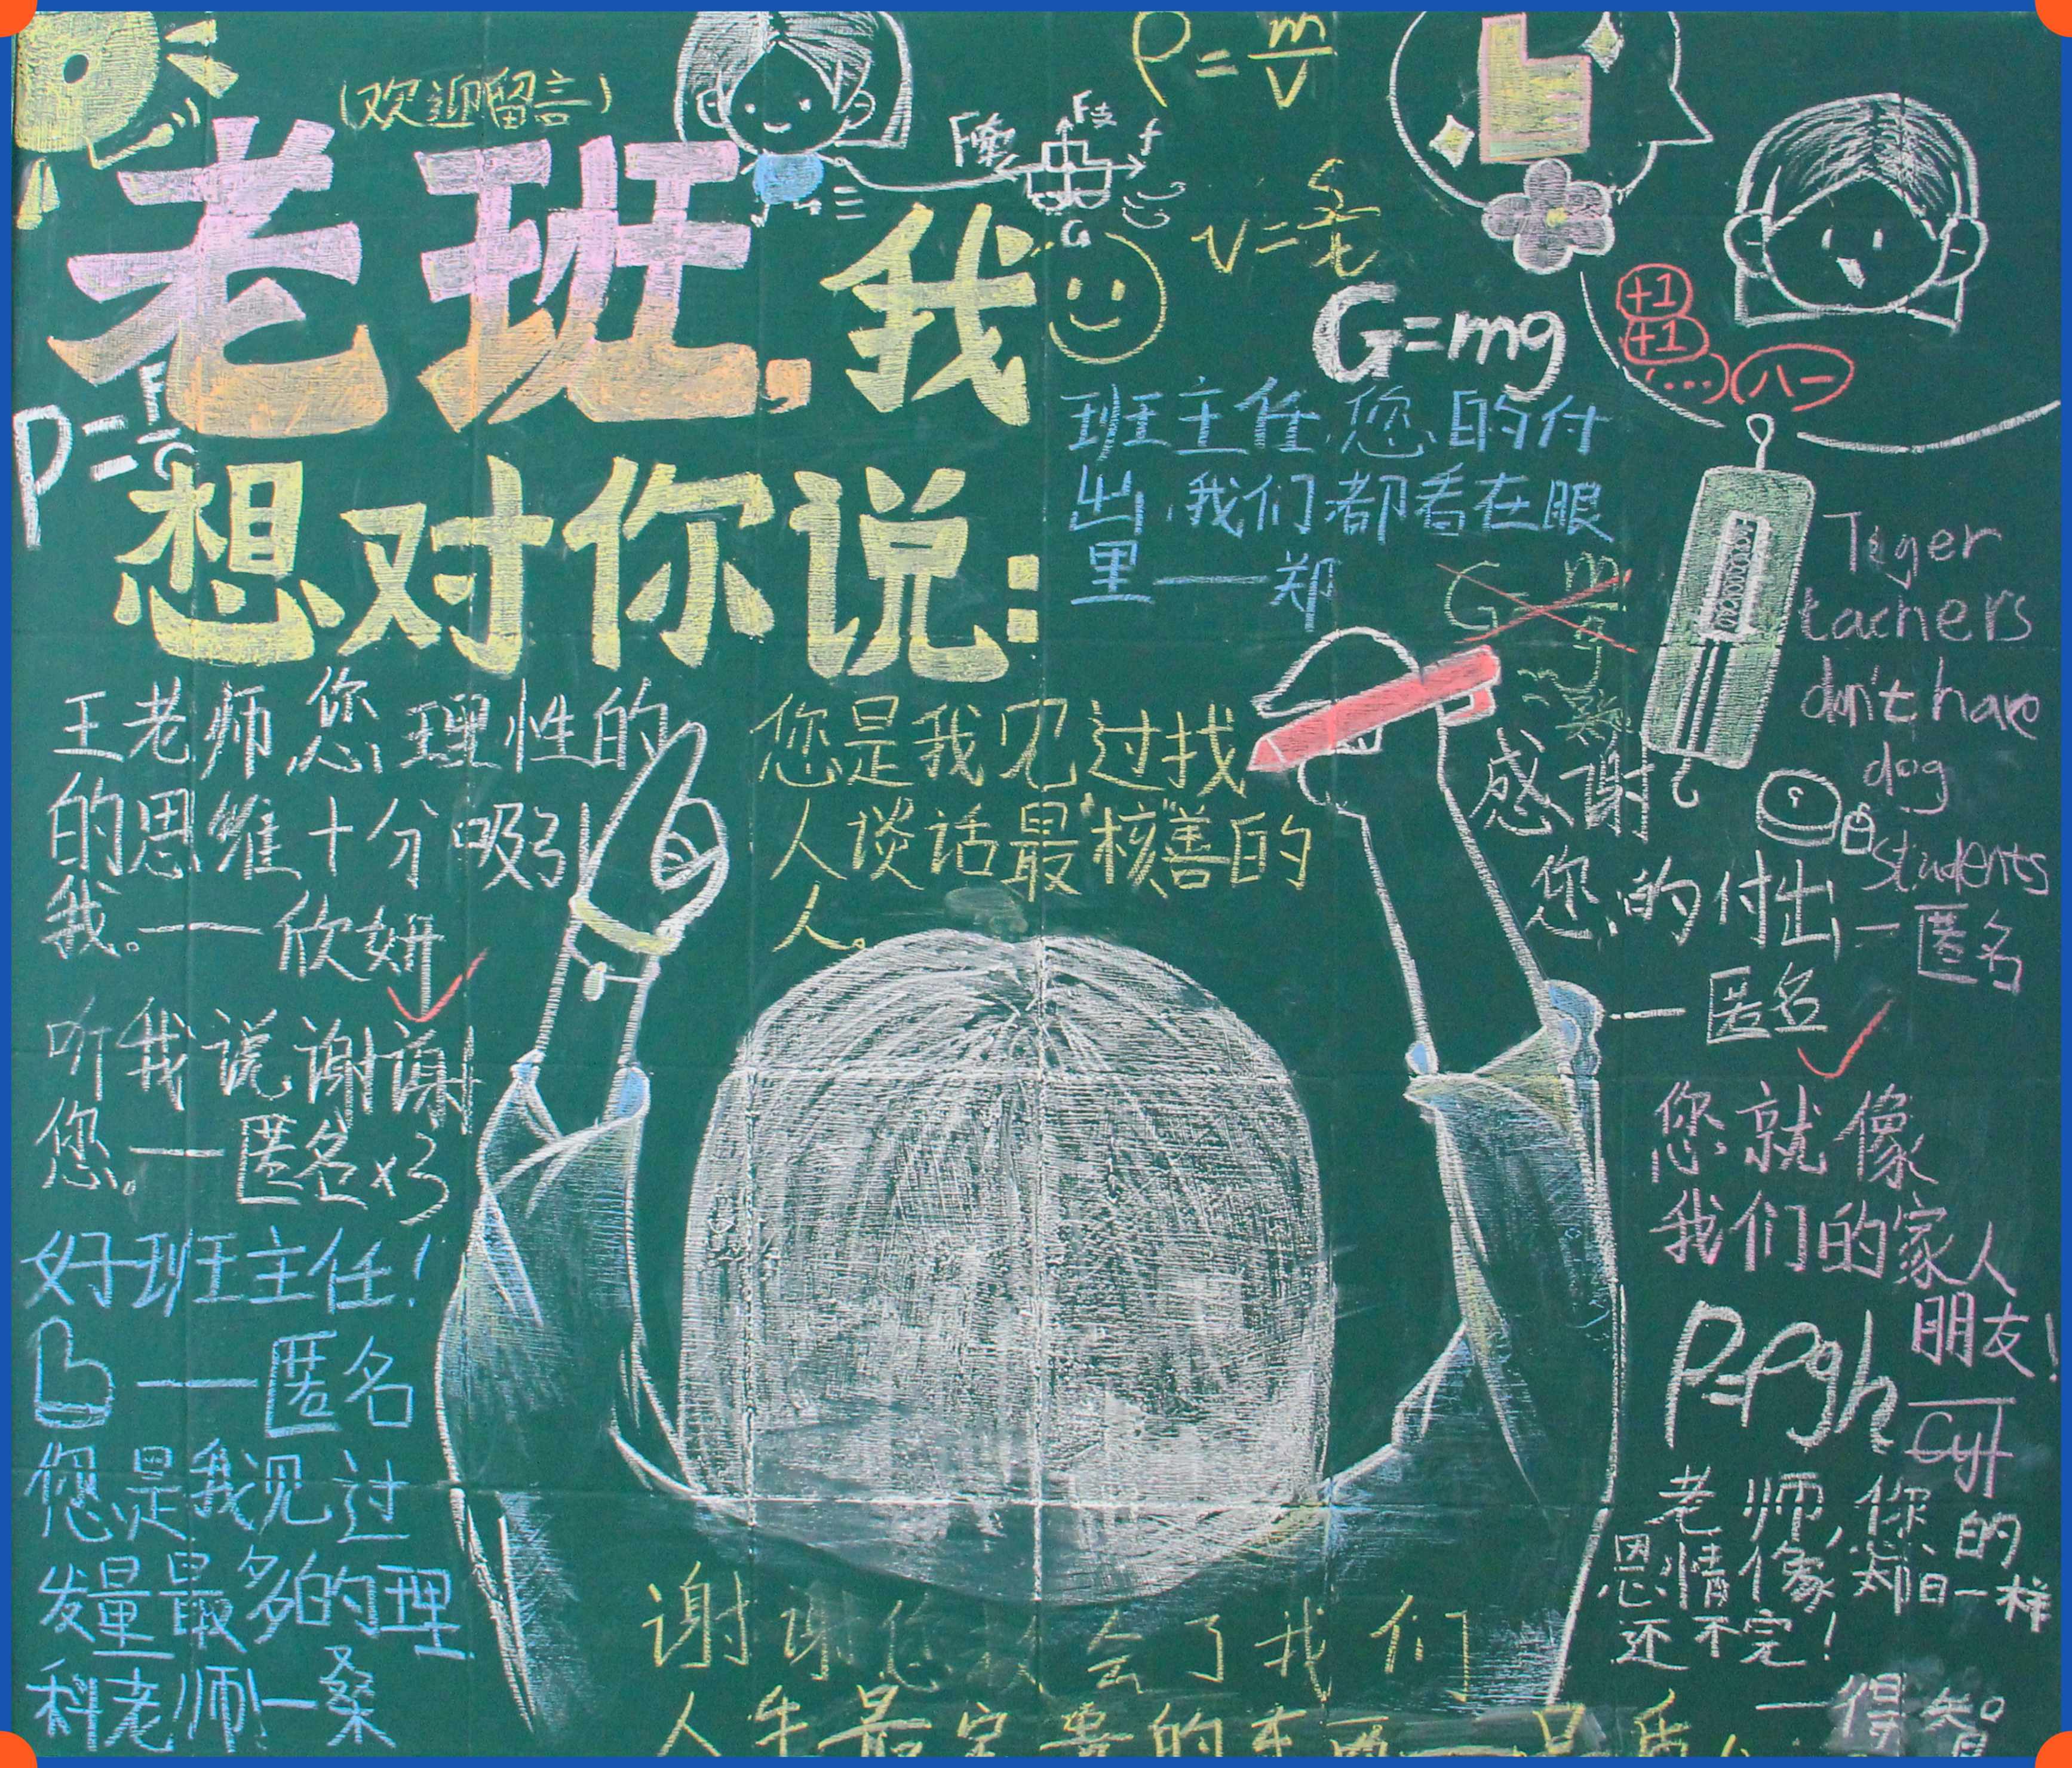 (欢迎留言)
老班,我
想对你说:
ρ=m/V
F支
f
G
v=s/t
G=mg
+1
+1
...
八一
P=F
班主任,您的付
出,我们都看在眼
里——郑
G=m/g
Teger
tachers
don't have
dog
students
—匿名
王老师,您理性的
的思维十分吸引
我。——欣妍
您是我见过找
人谈话最"核善"的
人。
感谢
您的付出
—匿名
听我说谢谢
您。——匿名x3
您就像
我们的家人
朋友!
—Cyf
好班主任!
——匿名
P=ρgh
您是我见过
发量最多的理
科老师—桑
老师,你的
恩情像郑旧一样
还不完!
—得智
谢谢您教会了我们
人生最宝贵的东西——